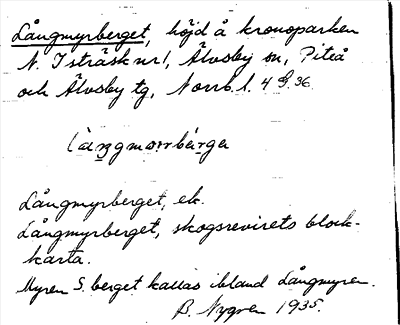 Långmyrberget, höjd å kronoparken
N. Isträsk nr 1, Älvsby sn, Piteå
och Älvsby tg, Norrb. l. 4 36
Långmyrberget, ek.
Långmyrberget, skogsrevirets block-
karta.
Myren S. berget kallas ibland Långmyren.
B. Nygren 1935.